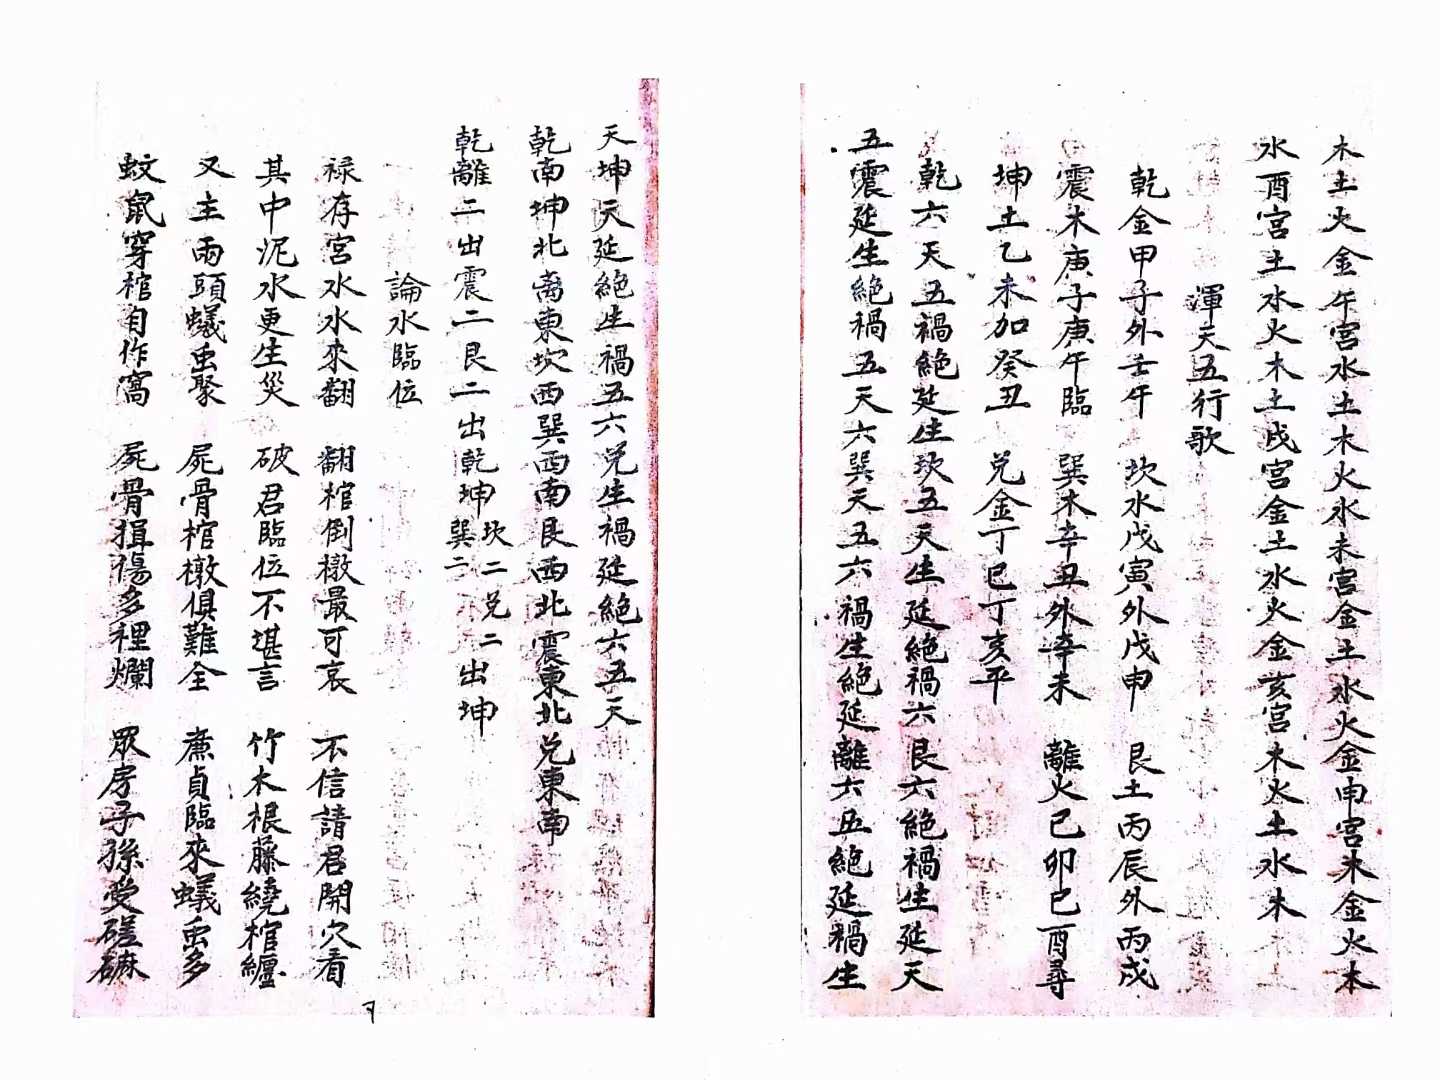 木土火金午宮水土木火水未宮金土水火金申宮木金火木
水酉宮土水火木土戌宮金土水火金亥宮木火土水木
渾天五行歌
乾金甲子外壬午 坎水戊寅外戊申 艮土丙辰外丙戌
震木庚子庚午臨 巽木辛丑外辛未 離火己卯己酉尋
坤土乙未加癸丑 兌金丁巳丁亥平
乾六天五禍絕延生坎五天生延絕禍六艮六絕禍生延天
五震延生絕禍五天六巽天五六禍生絕延離六五絕延禍生
天坤天延絕生禍五六兌生禍延絕六五天
乾南坤北离東坎西巽西南艮西北震東北兌東南
乾離二出震二艮二出乾坤坎二兌二出坤
巽二
論水臨位
禄存宮水水來翻 翻棺倒槨最可哀 不信請君開穴看
其中泥水更生災 破君臨位不堪言 竹木根藤繞棺纏
又主兩頭蟻虫聚 屍骨棺槨俱難全 廉貞臨來蟻虫多
蚊鼠穿棺自作窩 屍骨損傷多裡爛 眾房子孫受磋磨